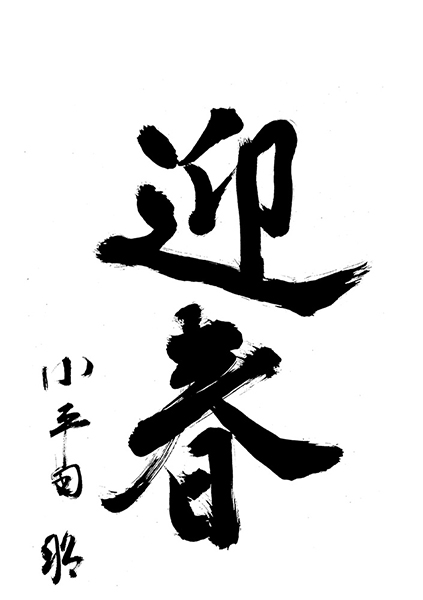 迎春
小平田